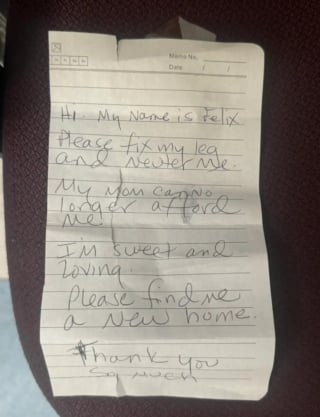 Memo No.
Date / /
Hi. My Name is Felix
Please fix my leg
and neuter me.
My mom can no
longer afford
me!
I'm sweet and
loving.
Please find me
a new home.
Thank you
so much